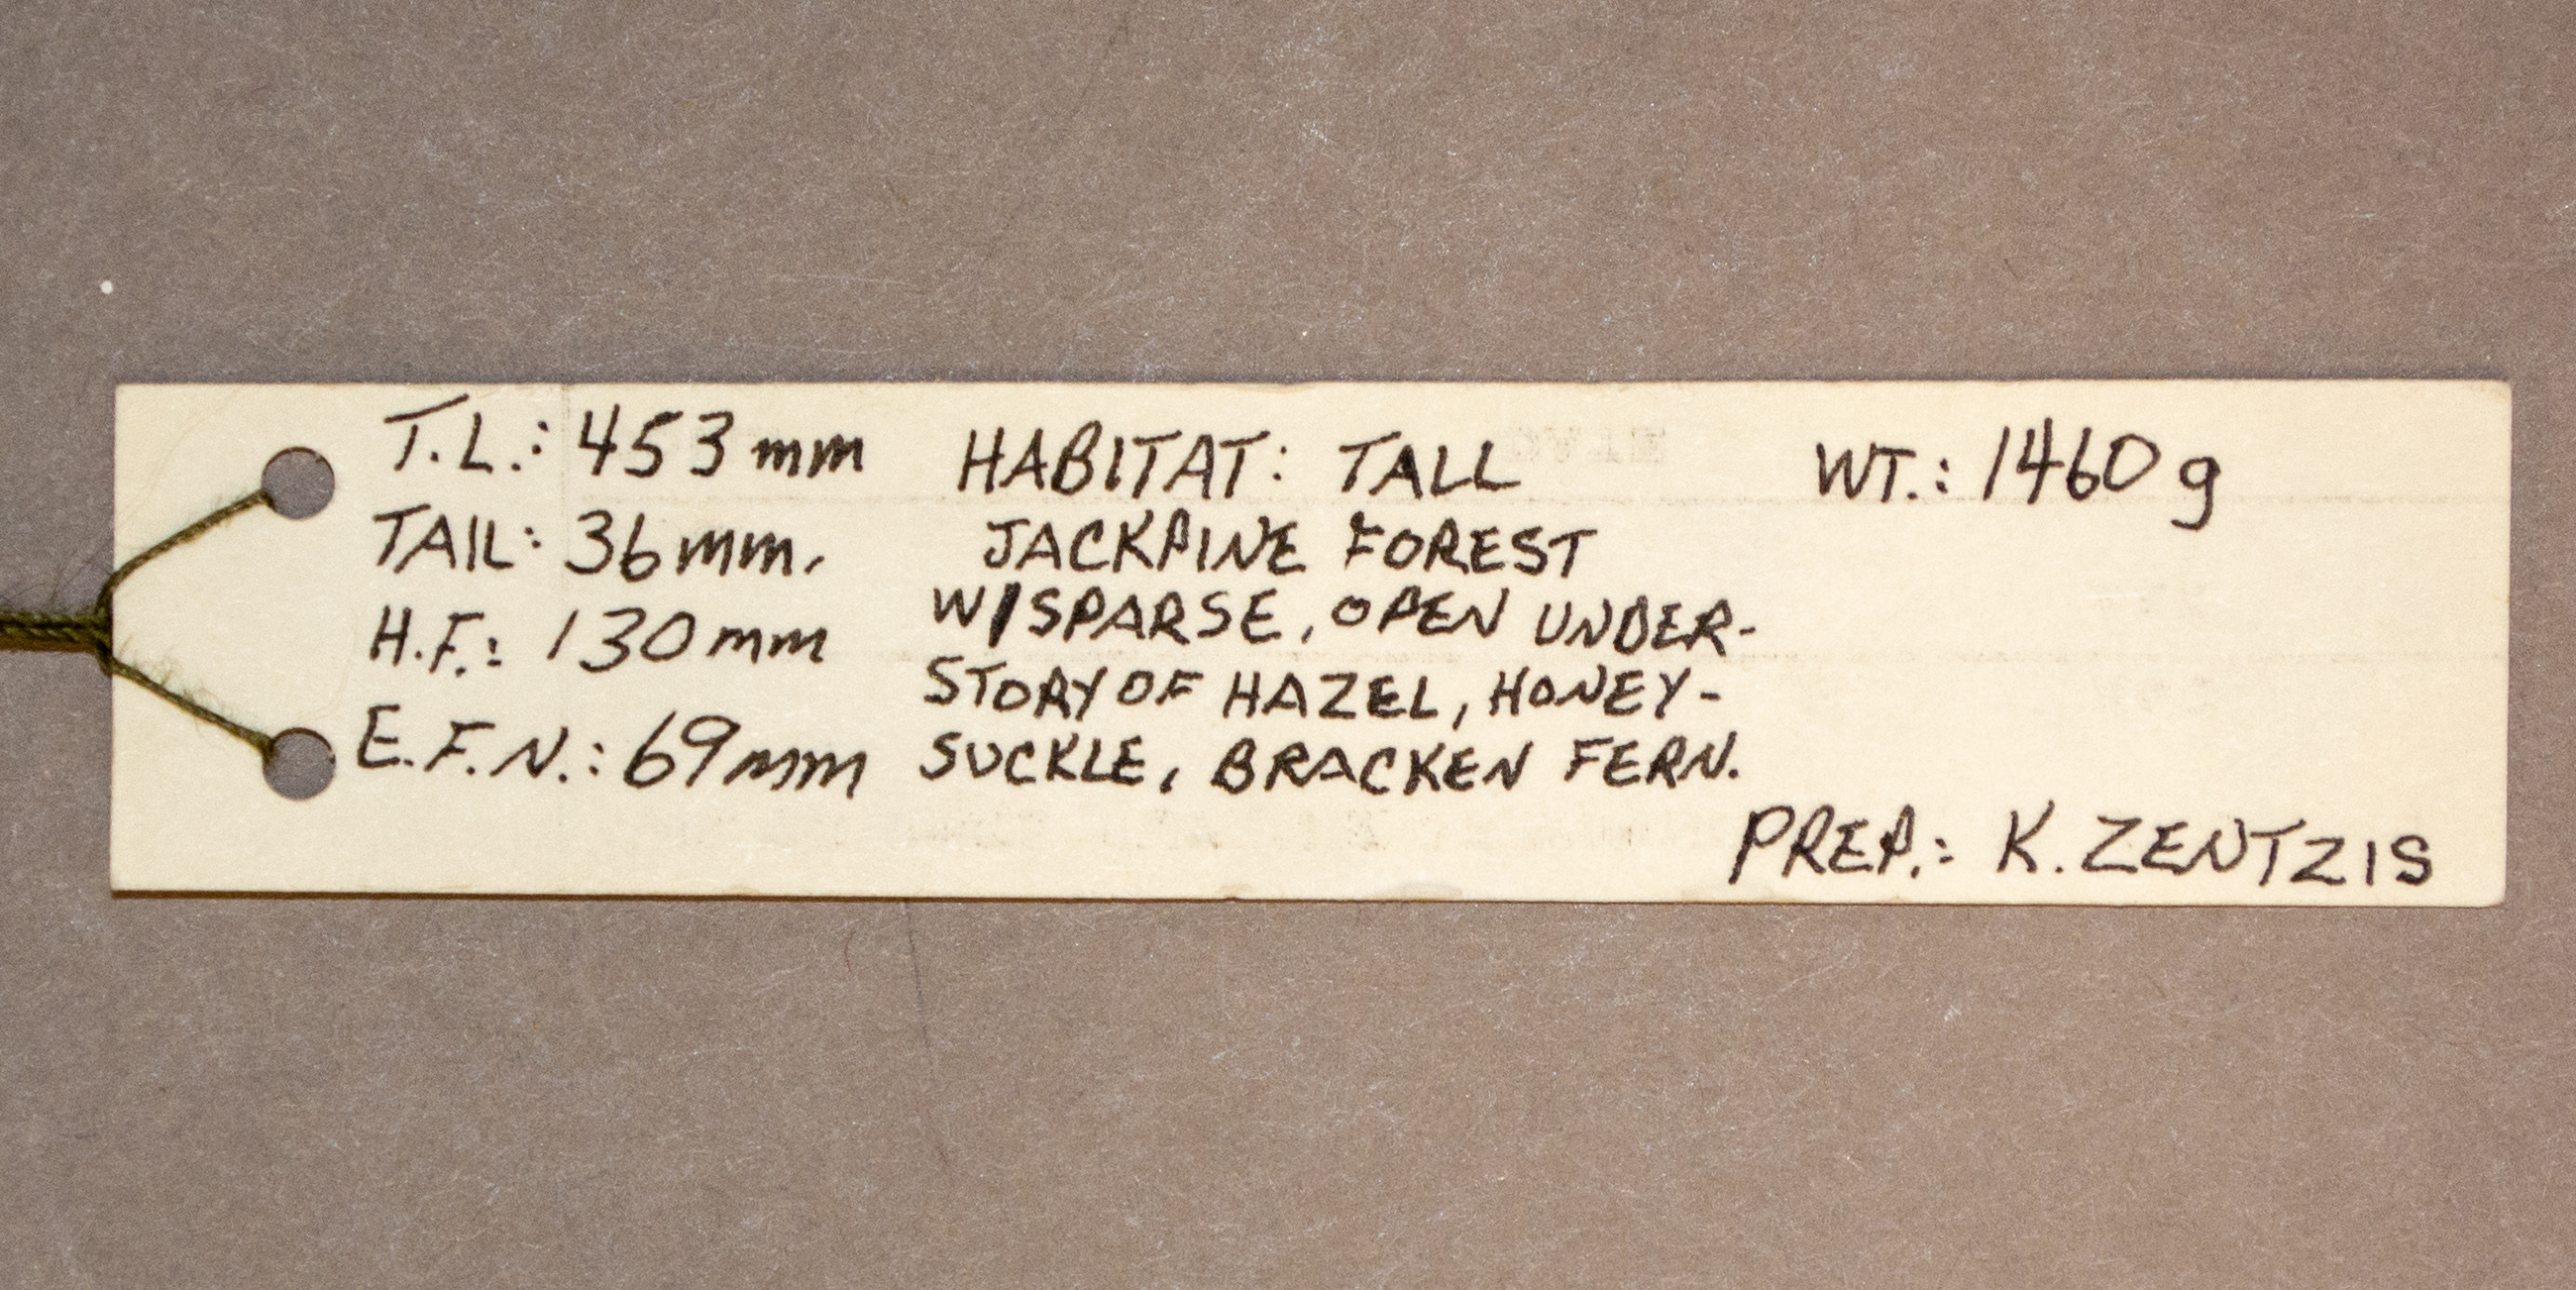 T.L.: 453 mm
TAIL: 36 mm.
H.F.: 130 mm
E.F.N.: 69 mm
HABITAT: TALL
JACKPINE FOREST
W/SPARSE, OPEN UNDER-
STORY OF HAZEL, HONEY-
SUCKLE, BRACKEN FERN.
WT.: 1460 g
PREP.: K. ZENTZIS